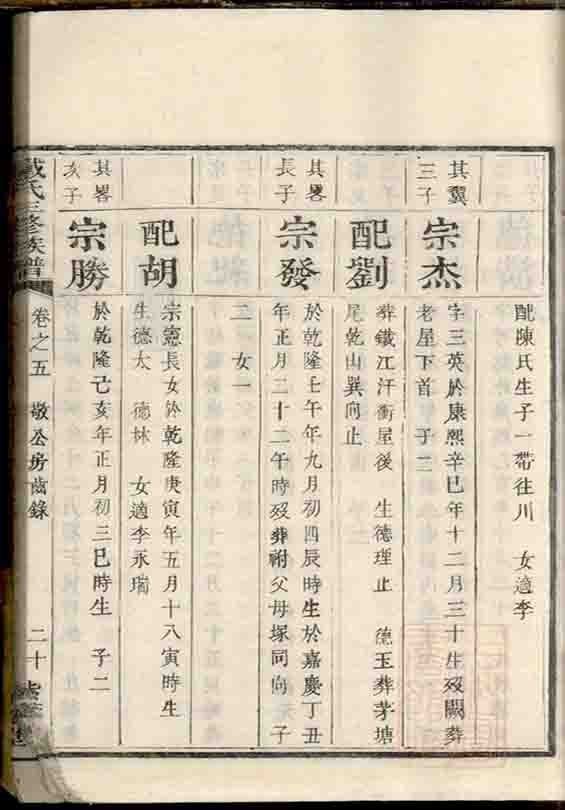 配陳氏生子一帶往川 女適李
其翼三子
宗杰
字三英於康熙辛巳年十二月三十生歿闕葬
老屋下首 子二
配劉
葬鐵江汗衝屋後 生德理止 德玉葬茅塘
尾乾山巽向止
其畧長子
宗發
於乾隆壬午年九月初四辰時生於嘉慶丁丑
年正月二十二午時歿葬祔父母塚同向 子
二 女一
配胡
宗憲長女於乾隆庚寅年五月十八寅時生
生德太 德林 女適李永瑞
其畧次子
宗勝
於乾隆己亥年正月初三巳時生 子二
戴氏三修族譜
卷之五 敬公房齒錄
二十